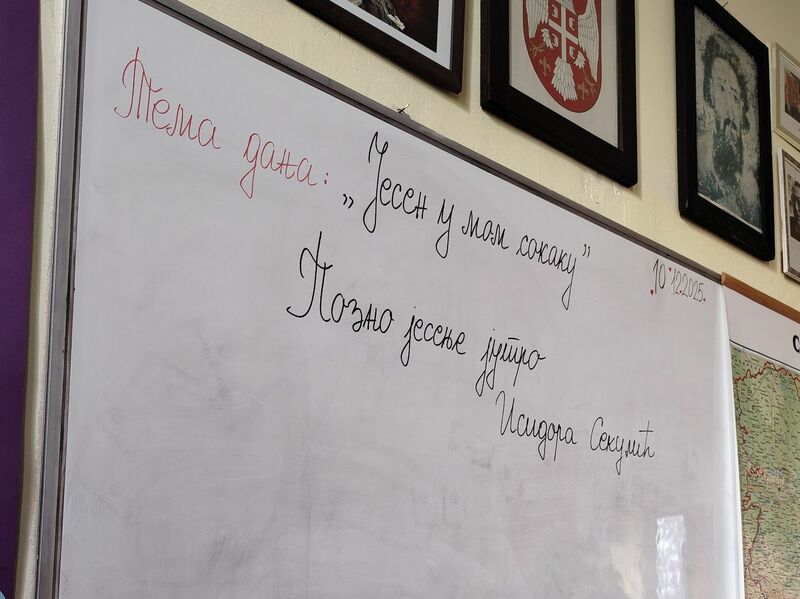 Тема дана: „Јесен у мом сокаку”
10.12.2025.
Позно јесење јутро
Исидора Секулић